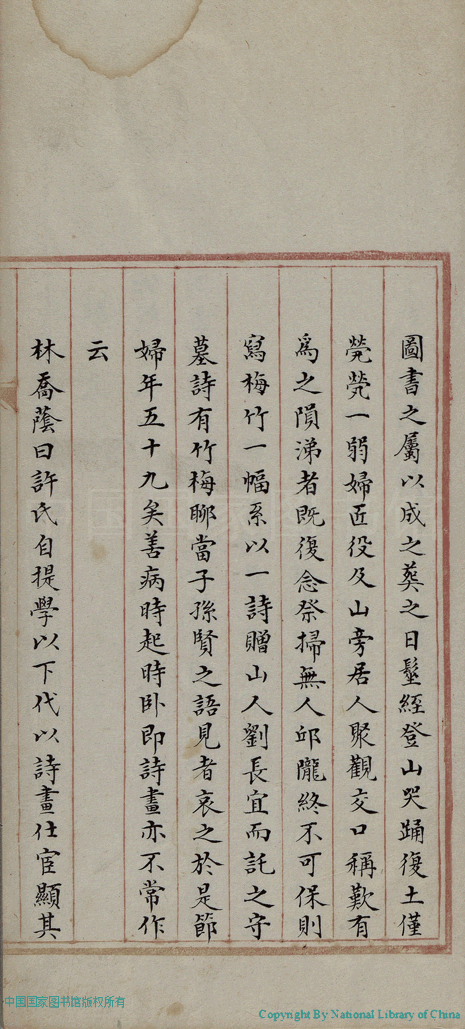 圖書之屬以成之葬之日髽絰登山哭踊復土僅
煢煢一弱婦匠役及山旁居人聚觀交口稱歎有
爲之隕涕者既復念祭掃無人邱隴終不可保則
寫梅竹一幅系以一詩贈山人劉長宜而託之守
墓詩有竹梅聊當子孫賢之語見者哀之於是節
婦年五十九矣善病時起時臥即詩畫亦不常作
云
林喬蔭曰許氏自提學以下代以詩畫仕宦顯其
中国国家图书馆版权所有
Copyright By National Library of China